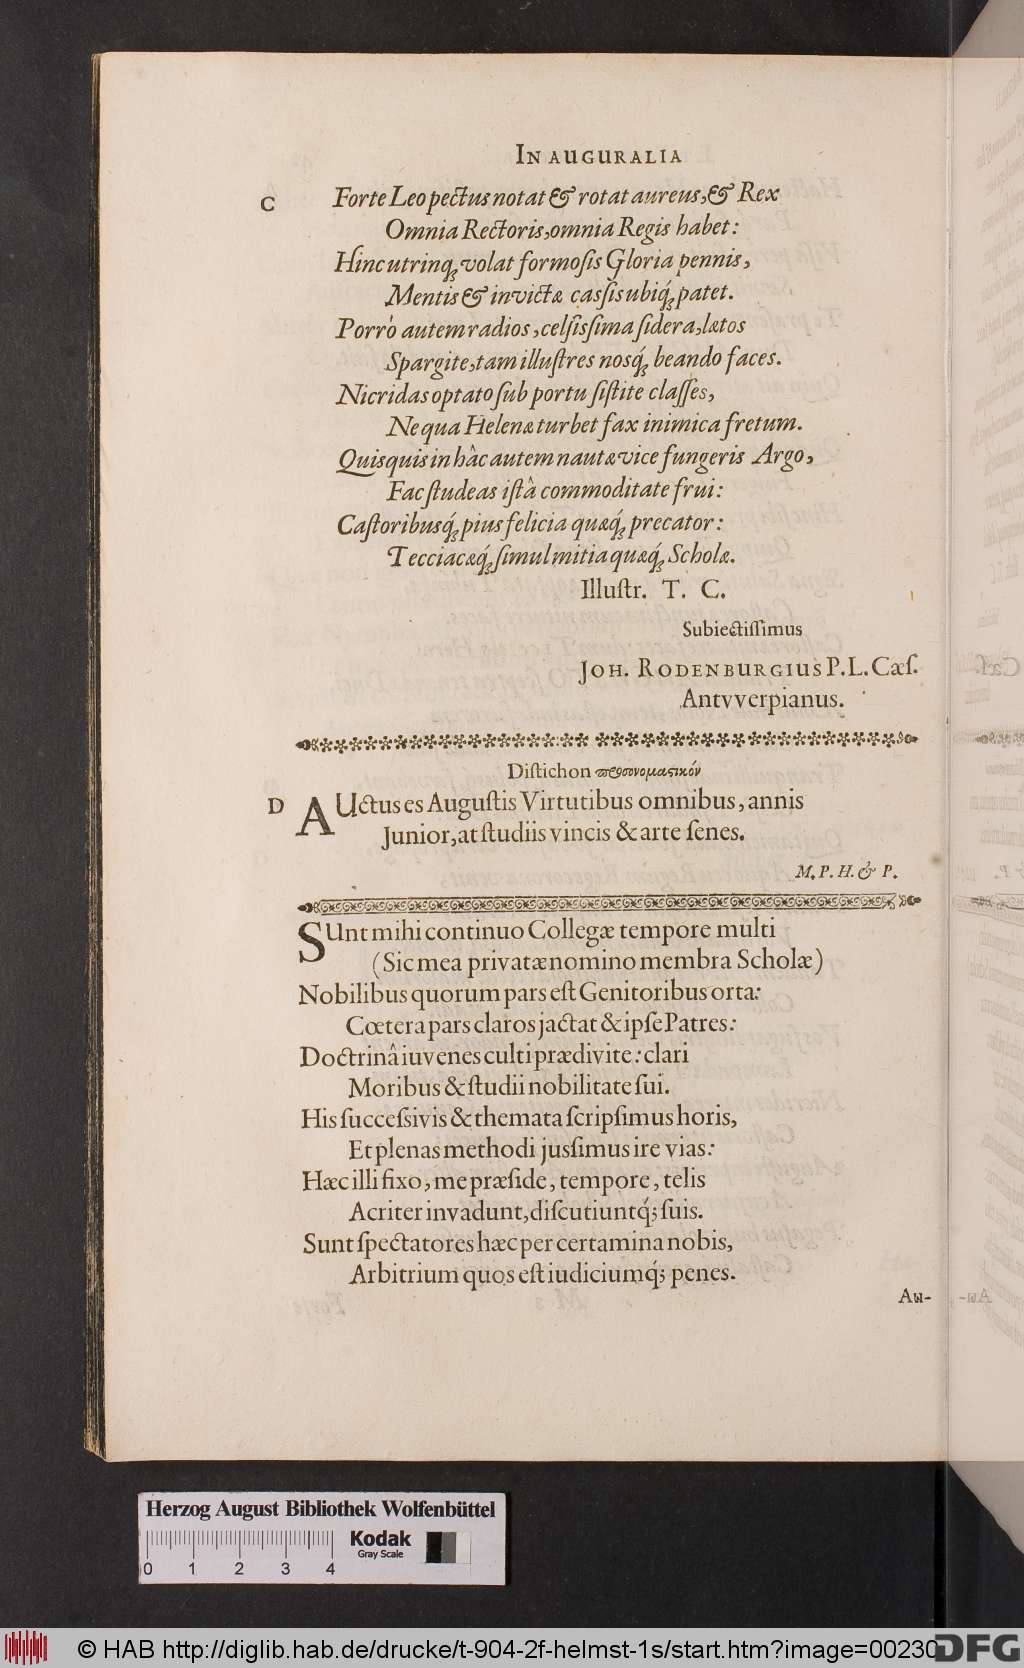 INAUGURALIA
C Forte Leo pectus notat & rotat aureus, & Rex
Omnia Rectoris, omnia Regis habet:
Hinc utrinq́; volat formoſis Gloria pennis,
Mentis & invictæ casſis ubiq́; patet.
Porrò autem radios, celſisſima ſidera, lætos
Spargite, tam illuſtres nosq́; beando faces.
Nicridas optato ſub portu ſiſtite claſſes,
Ne qua Helenæ turbet fax inimica fretum.
Quisquis in hâc autem nautæ vice fungeris Argo,
Fac ſtudeas iſtâ commoditate frui:
Caſtoribusq́; pius felicia quæq́; precator:
Tecciacæq́; ſimul mitia quæq́; Scholæ.
Illuſtr. T. C.
Subiectiſſimus
JOH. RODENBURGIUS P. L. Cæſ.
Antvverpianus.
Diſtichon
D AUctus es Auguſtis Virtutibus omnibus, annis
Junior, at ſtudiis vincis & arte ſenes.
M. P. H. & P.
SUnt mihi continuo Collegæ tempore multi
(Sic mea privatæ nomino membra Scholæ)
Nobilibus quorum pars eſt Genitoribus orta:
Cœtera pars claros jactat & ipſe Patres:
Doctrinâ iuvenes culti prædivite: clari
Moribus & ſtudii nobilitate ſui.
His ſuccesſivis & themata ſcripſimus horis,
Et plenas methodi jusſimus ire vias:
Hæc illi fixo, me præſide, tempore, telis
Acriter invadunt, diſcutiuntq́; ſuis.
Sunt ſpectatores hæc per certamina nobis,
Arbitrium quos eſt iudiciumq́; penes.
Au-
Herzog August Bibliothek Wolfenbüttel
Kodak
Gray Scale
0 1 2 3 4
© HAB http://diglib.hab.de/drucke/t-904-2f-helmst-1s/start.htm?image=00230
DFG